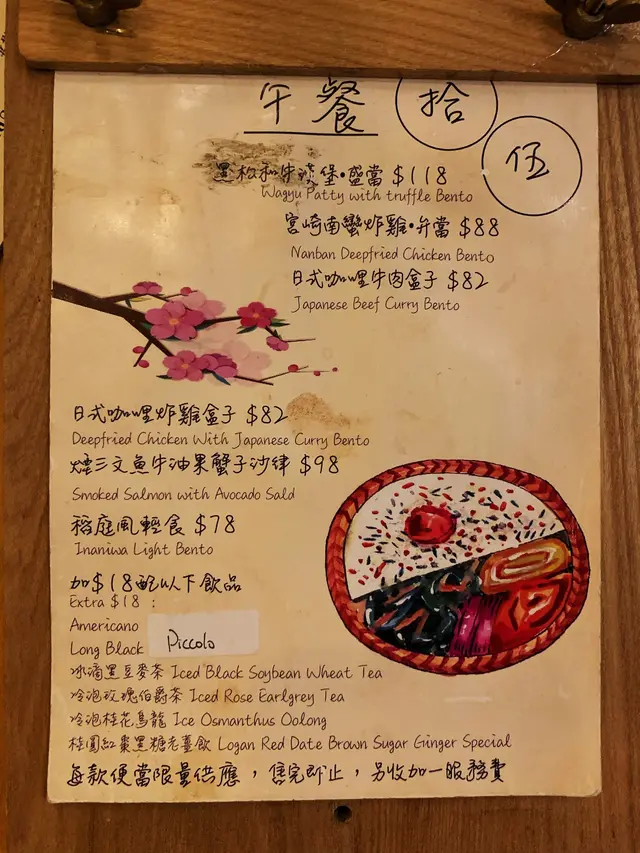 午餐
拾
伍
黑松和牛漢堡•盛當 $118
Wagyu Patty with truffle Bento
宮崎南蠻炸雞•弁當 $88
Nanban Deepfried Chicken Bento
日式咖哩牛肉盒子 $82
Japanese Beef Curry Bento
日式咖哩炸雞盒子 $82
Deepfried Chicken With Japanese Curry Bento
煙三文魚牛油果蟹子沙律 $98
Smoked Salmon with Avocado Sald
稻庭風輕食 $78
Inaniwa Light Bento
加$18配以下飲品
Extra $18 :
Americano
Long Black
Piccolo
冰滴黑豆麥茶 Iced Black Soybean Wheat Tea
冷泡玫瑰伯爵茶 Iced Rose Earlgrey Tea
冷泡桂花烏龍 Ice Osmanthus Oolong
桂圓紅棗黑糖老薑飲 Logan Red Date Brown Sugar Ginger Special
每款便當限量供應，售完即止，另收加一服務費